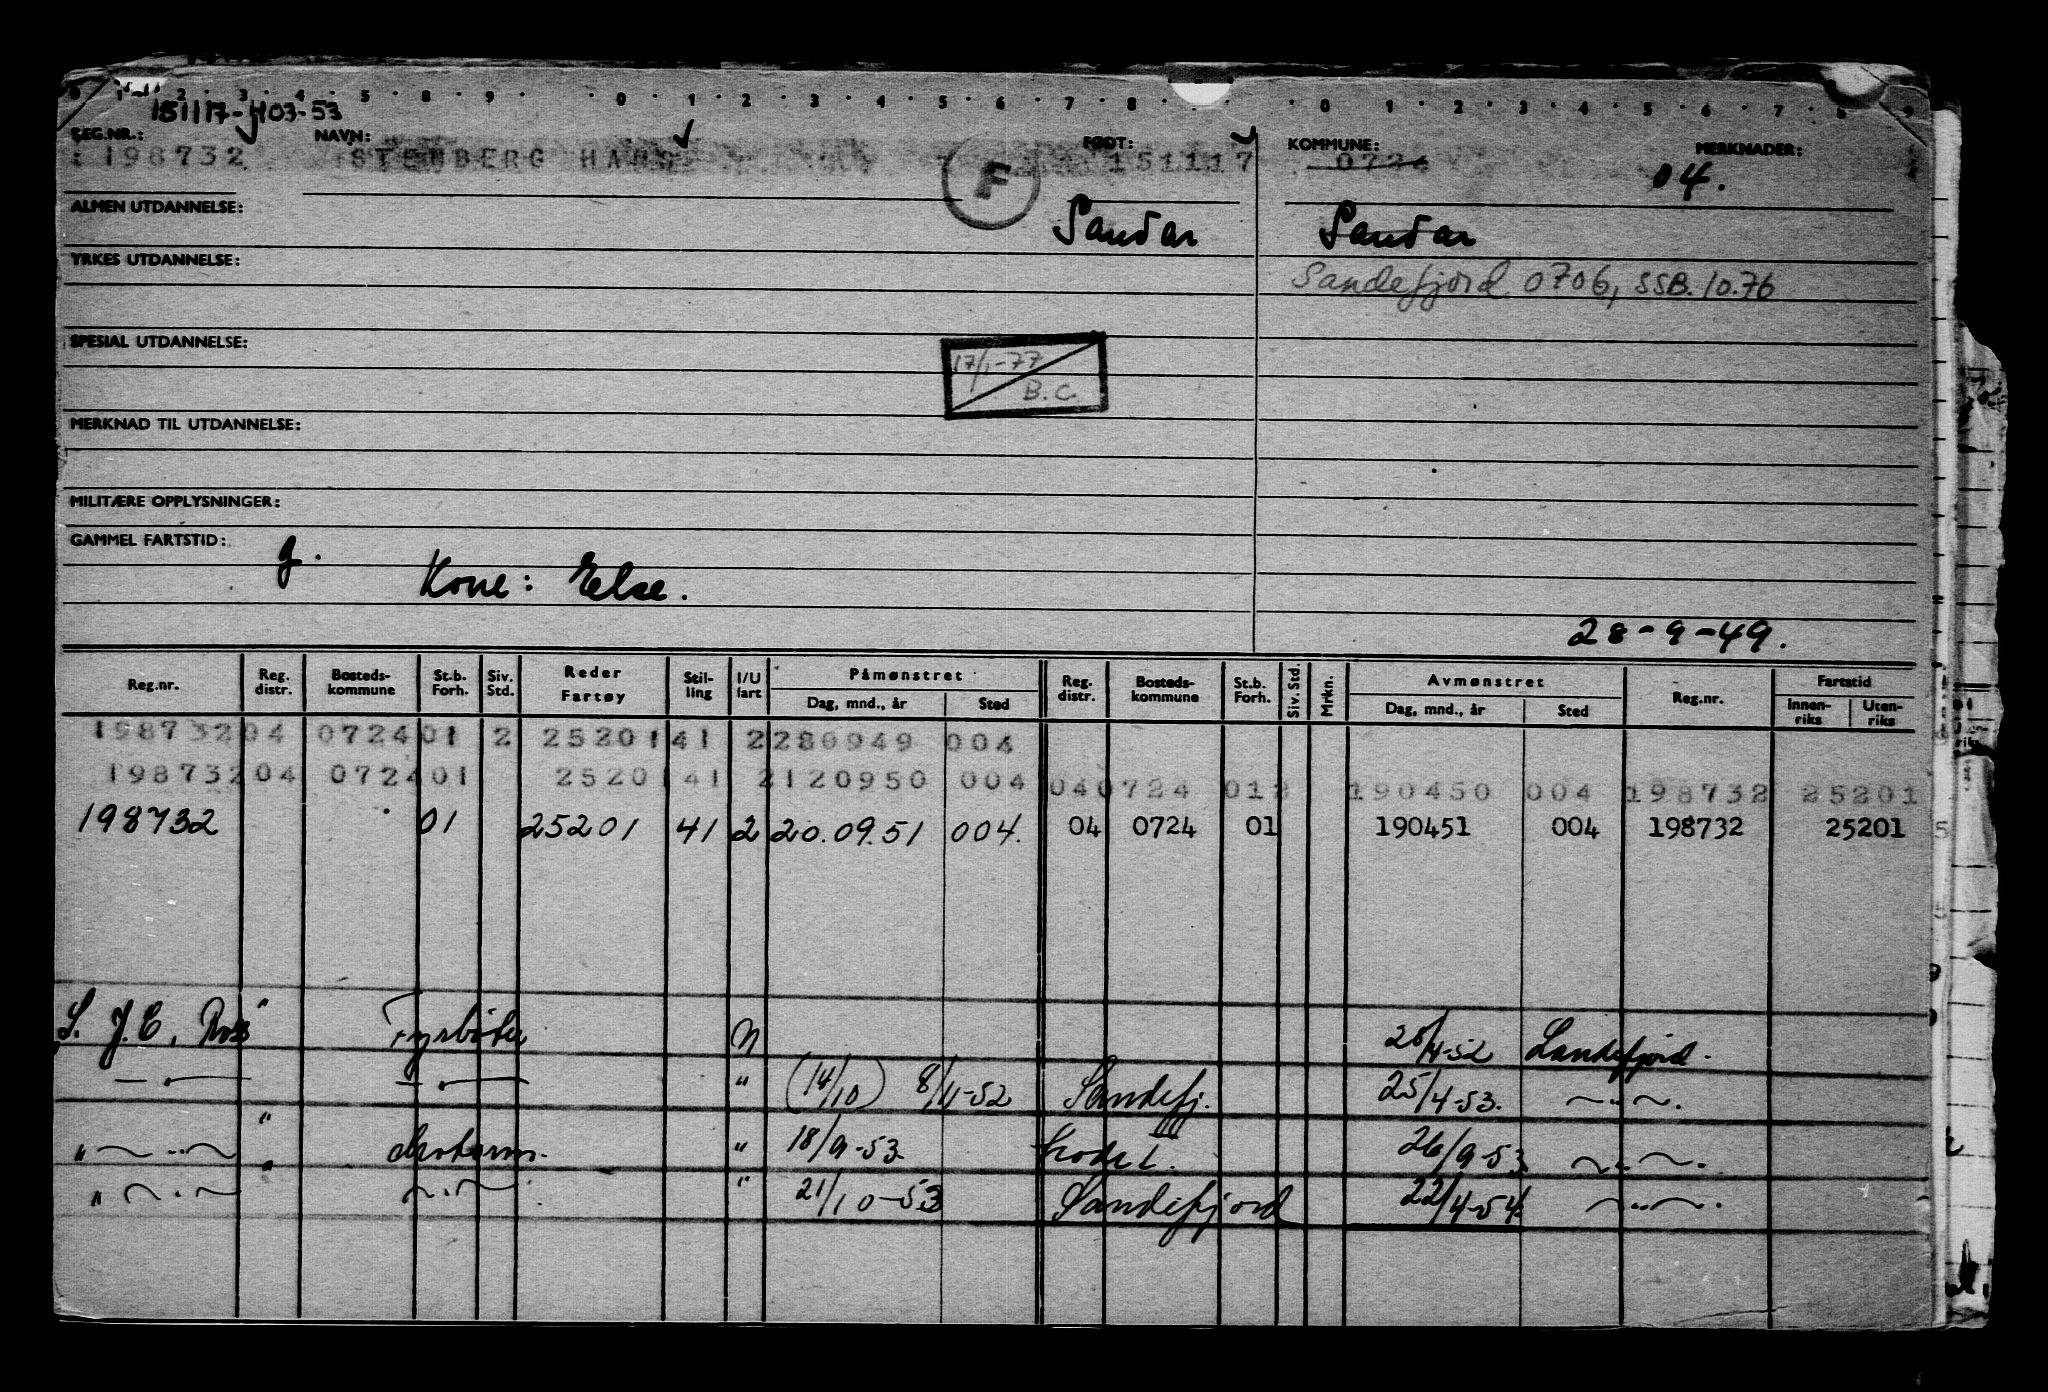 0 1 2 3 4 5 8 9 0 1 2 3 4 5 6 7 8 0 1 2 3 4 5 6 7 8 9
151117- 403-53
REG.NR.: NAVN: FØDT: KOMMUNE: MERKNADER:
198732 STENBERG HANS F 151117 0724 04.
ALMEN UTDANNELSE: Sandar Sandar
YRKES UTDANNELSE: Sandefjord 0706, SSB. 10.76
SPESIAL UTDANNELSE:
17/1-77
B.C.
MERKNAD TIL UTDANNELSE:
MILITÆRE OPPLYSNINGER:
GAMMEL FARTSTID: g.
Kone: Else.
28-9-49.
Reg.nr. Reg. distr. Bosteds-kommune St.b. Forh. Siv. Std. Reder Fartøy Stil-ling I/U fart Påmønstret Dag, mnd., år Sted Reg. distr. Bosteds-kommune St.b. Forh. Siv. Std. Mrkn. Avmønstret Dag, mnd., år Sted Reg.nr. Fartstid Innen-riks Uten-riks
198732 04 0724 01 2 25201 41 2 280949 004
198732 04 0724 01 25201 41 2 120950 004 04 0724 01 2 190450 004 198732 25201
198732 01 25201 41 2 20.09.51 004. 04 0724 01 190451 004 198732 25201
S. J.C. Ross" Fyrbøter N 28/4-52 Sandefjord.
— " — — " — " (14/10) 8/11-52 Sandefj. 25/4-53. ~ " ~.
" ~ " ~ " Motorm. " 18/9-53 26/9-53 ~ " ~.
" ~ " ~ " ~ " ~ " 21/10-53 Sandefjord 22/4-54. ~ " ~.